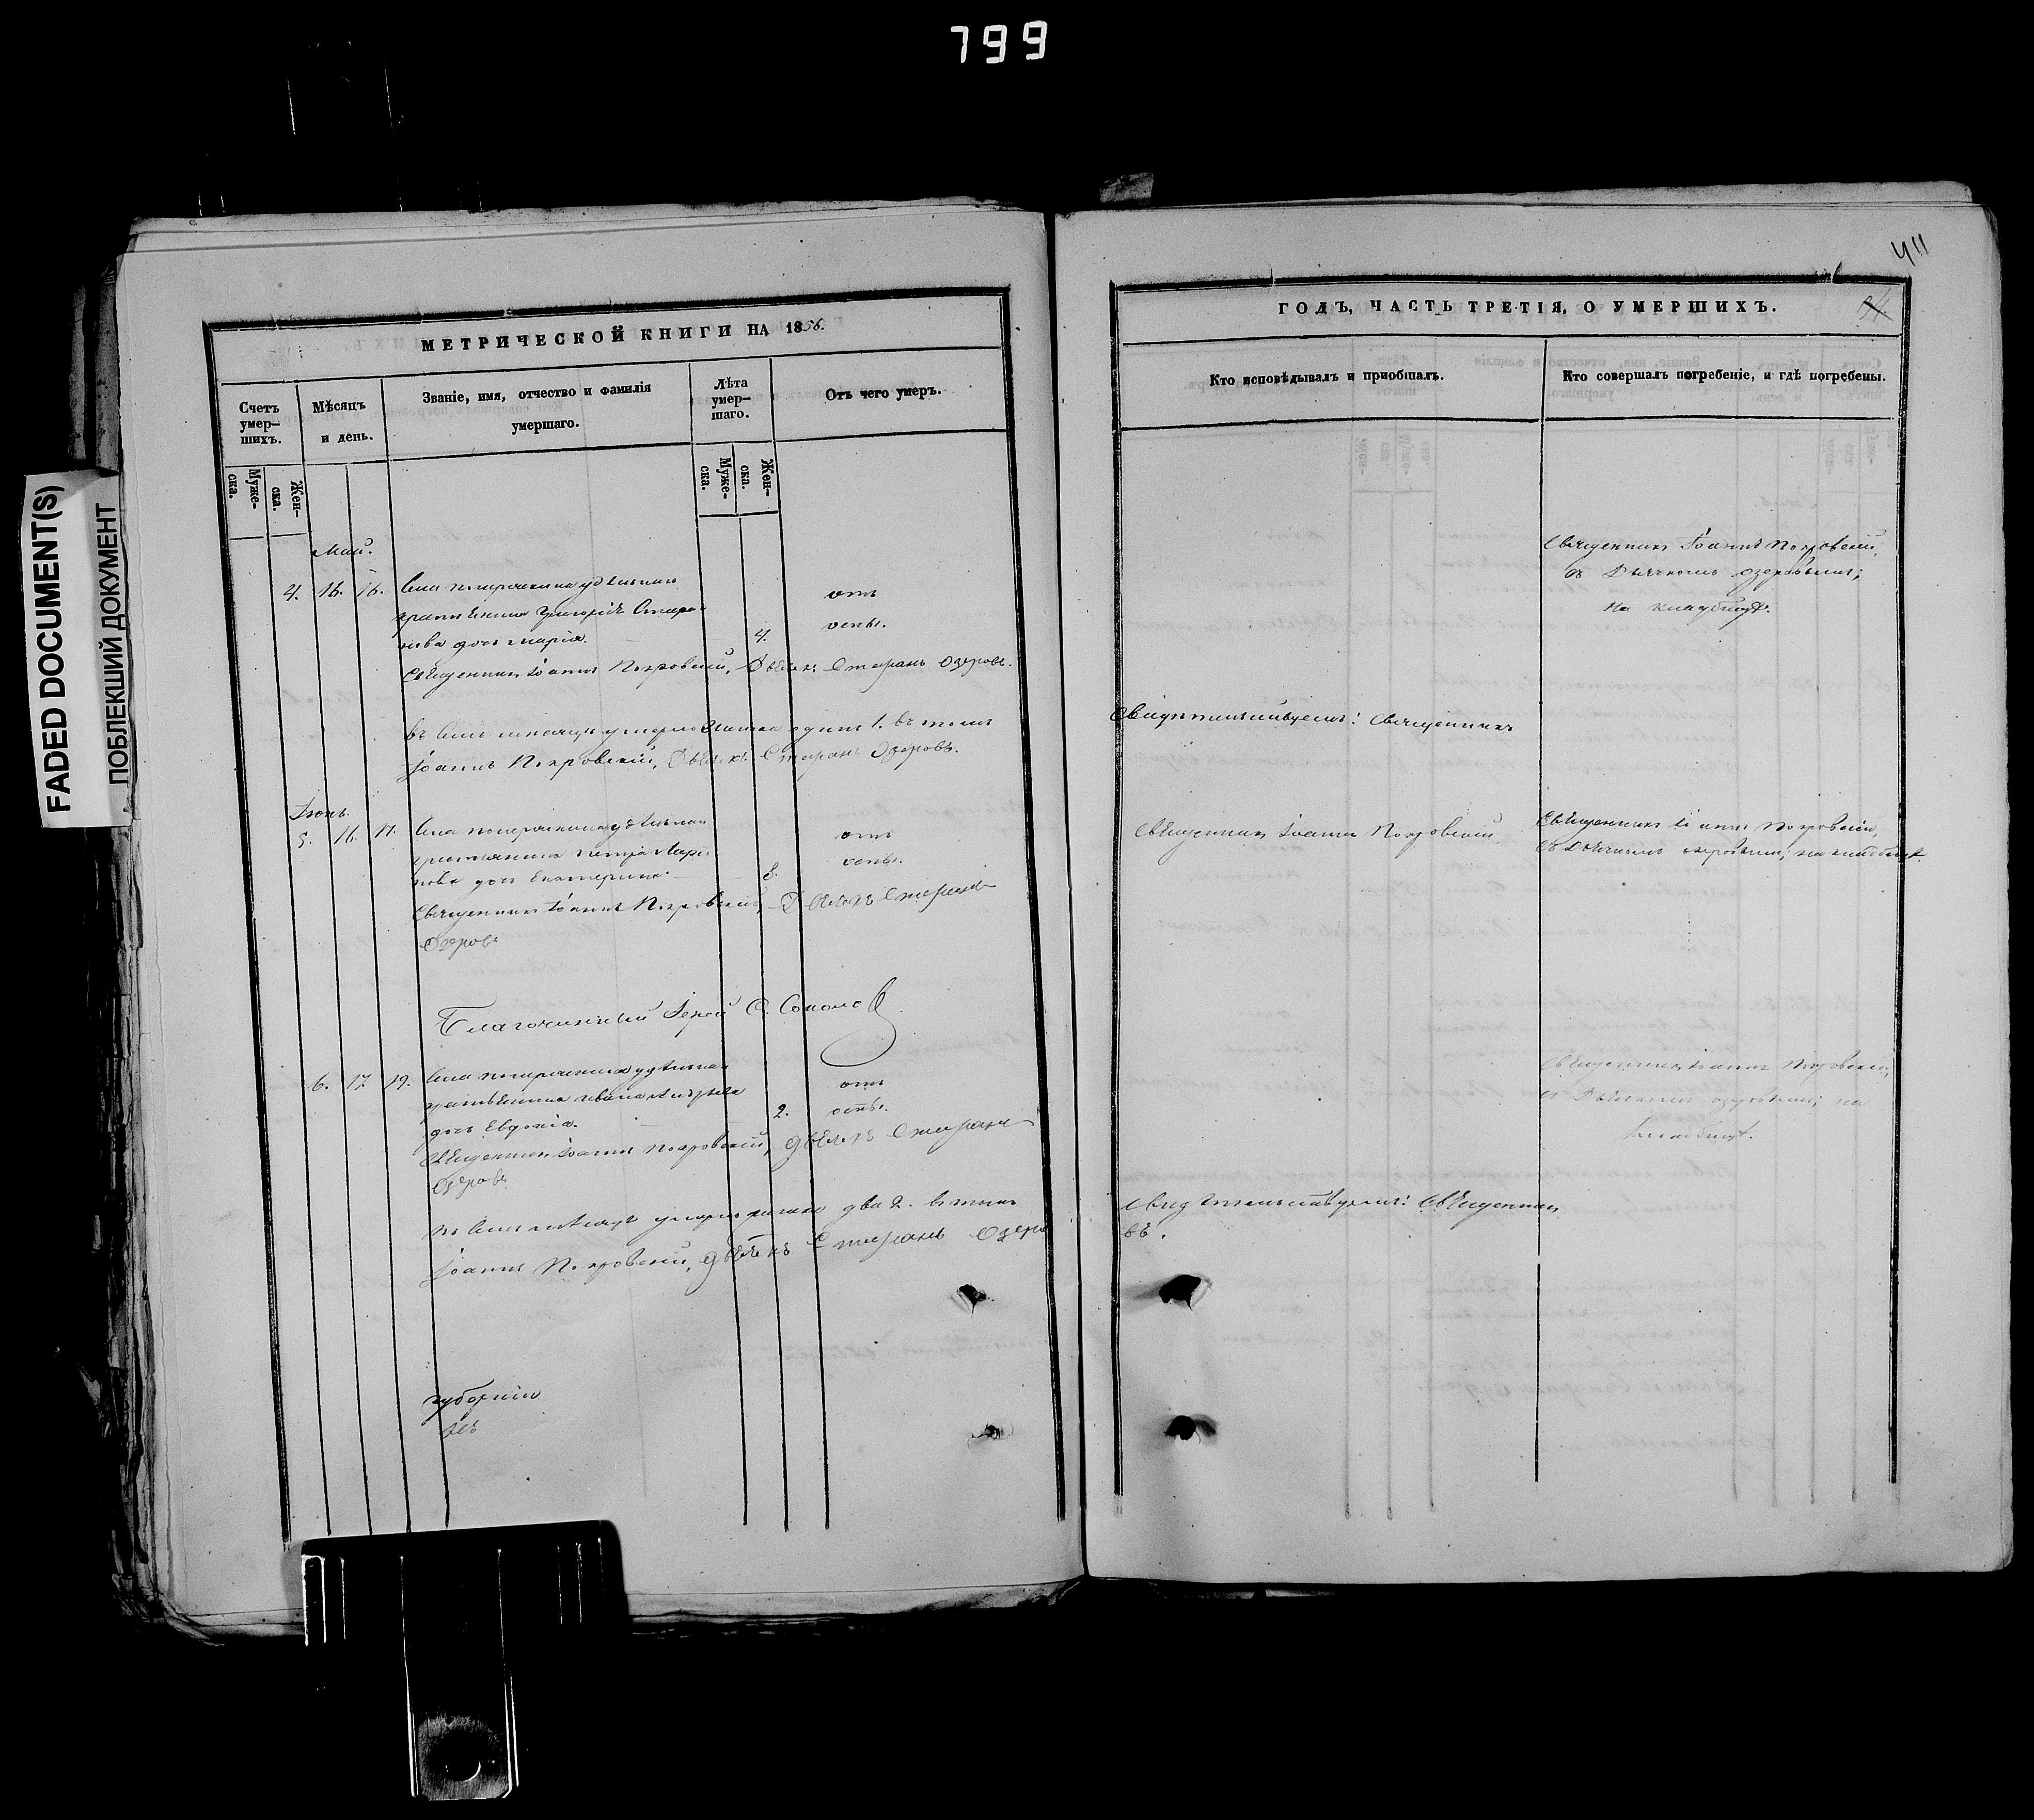 799
FADED DOCUMENT(S)
ПОБЛЕКШИЙ ДОКУМЕНТ
МЕТРИЧЕСКОЙ КНИГИ НА 1856.
Счетъ умер-шихъ.
Мѣсяцъ и день.
Званіе, имя, отчество и фамилія умершаго.
Лѣта умер-шаго.
Отъ чего умеръ.
Муже-ска.
Жен-ска.
Муже-ска.
Жен-ска.
Май.
4. 16. 18. Села
крестьянина Григорія
дочь Марія. 4. отъ
оспы.
Священникъ Іоаннъ Покровскій, Дьячекъ Стефанъ Озеровъ.
въ семъ мѣсяцѣ умерло одинъ 1. въ томъ
Іоаннъ Покровскій, Дьячекъ Стефанъ Озеровъ.
Іюнь.
5. 16. 17. Села
крестьянина Петра
дочь Екатерина. отъ
оспы.
Священникъ Іоаннъ Покровскій, Дьячекъ Стефанъ
Озеровъ
Благочинный Іерей Соколовъ
6. 17. 19. Села
крестьянина Ивана
дочь Евдокія. 2. отъ
оспы.
Священникъ Іоаннъ Покровскій, дьячекъ Стефанъ
Озеровъ
въ семъ мѣсяцѣ умерло два 2. въ томъ
Іоаннъ Покровскій, дьячекъ Стефанъ Озеро
губерніи
411
ГОДЪ, ЧАСТЬ ТРЕТІЯ, О УМЕРШИХЪ.
Кто исповѣдывалъ и приобщалъ.
Кто совершалъ погребеніе, и гдѣ погребены.
Священникъ Іоаннъ Покровскій,
съ Дьячкомъ Озеровымъ;
на кладбищѣ.
свидѣтельствуемъ: Священникъ
Священникъ Іоаннъ Покровскій
Священникъ Іоаннъ Покровскій,
съ Дьячкомъ Озеровымъ; на кладбищѣ
Священникъ Іоаннъ Покровскій,
съ Дьячкомъ Озеровымъ; на
кладбищѣ.
свидѣтельствуемъ: Священникъ
въ.